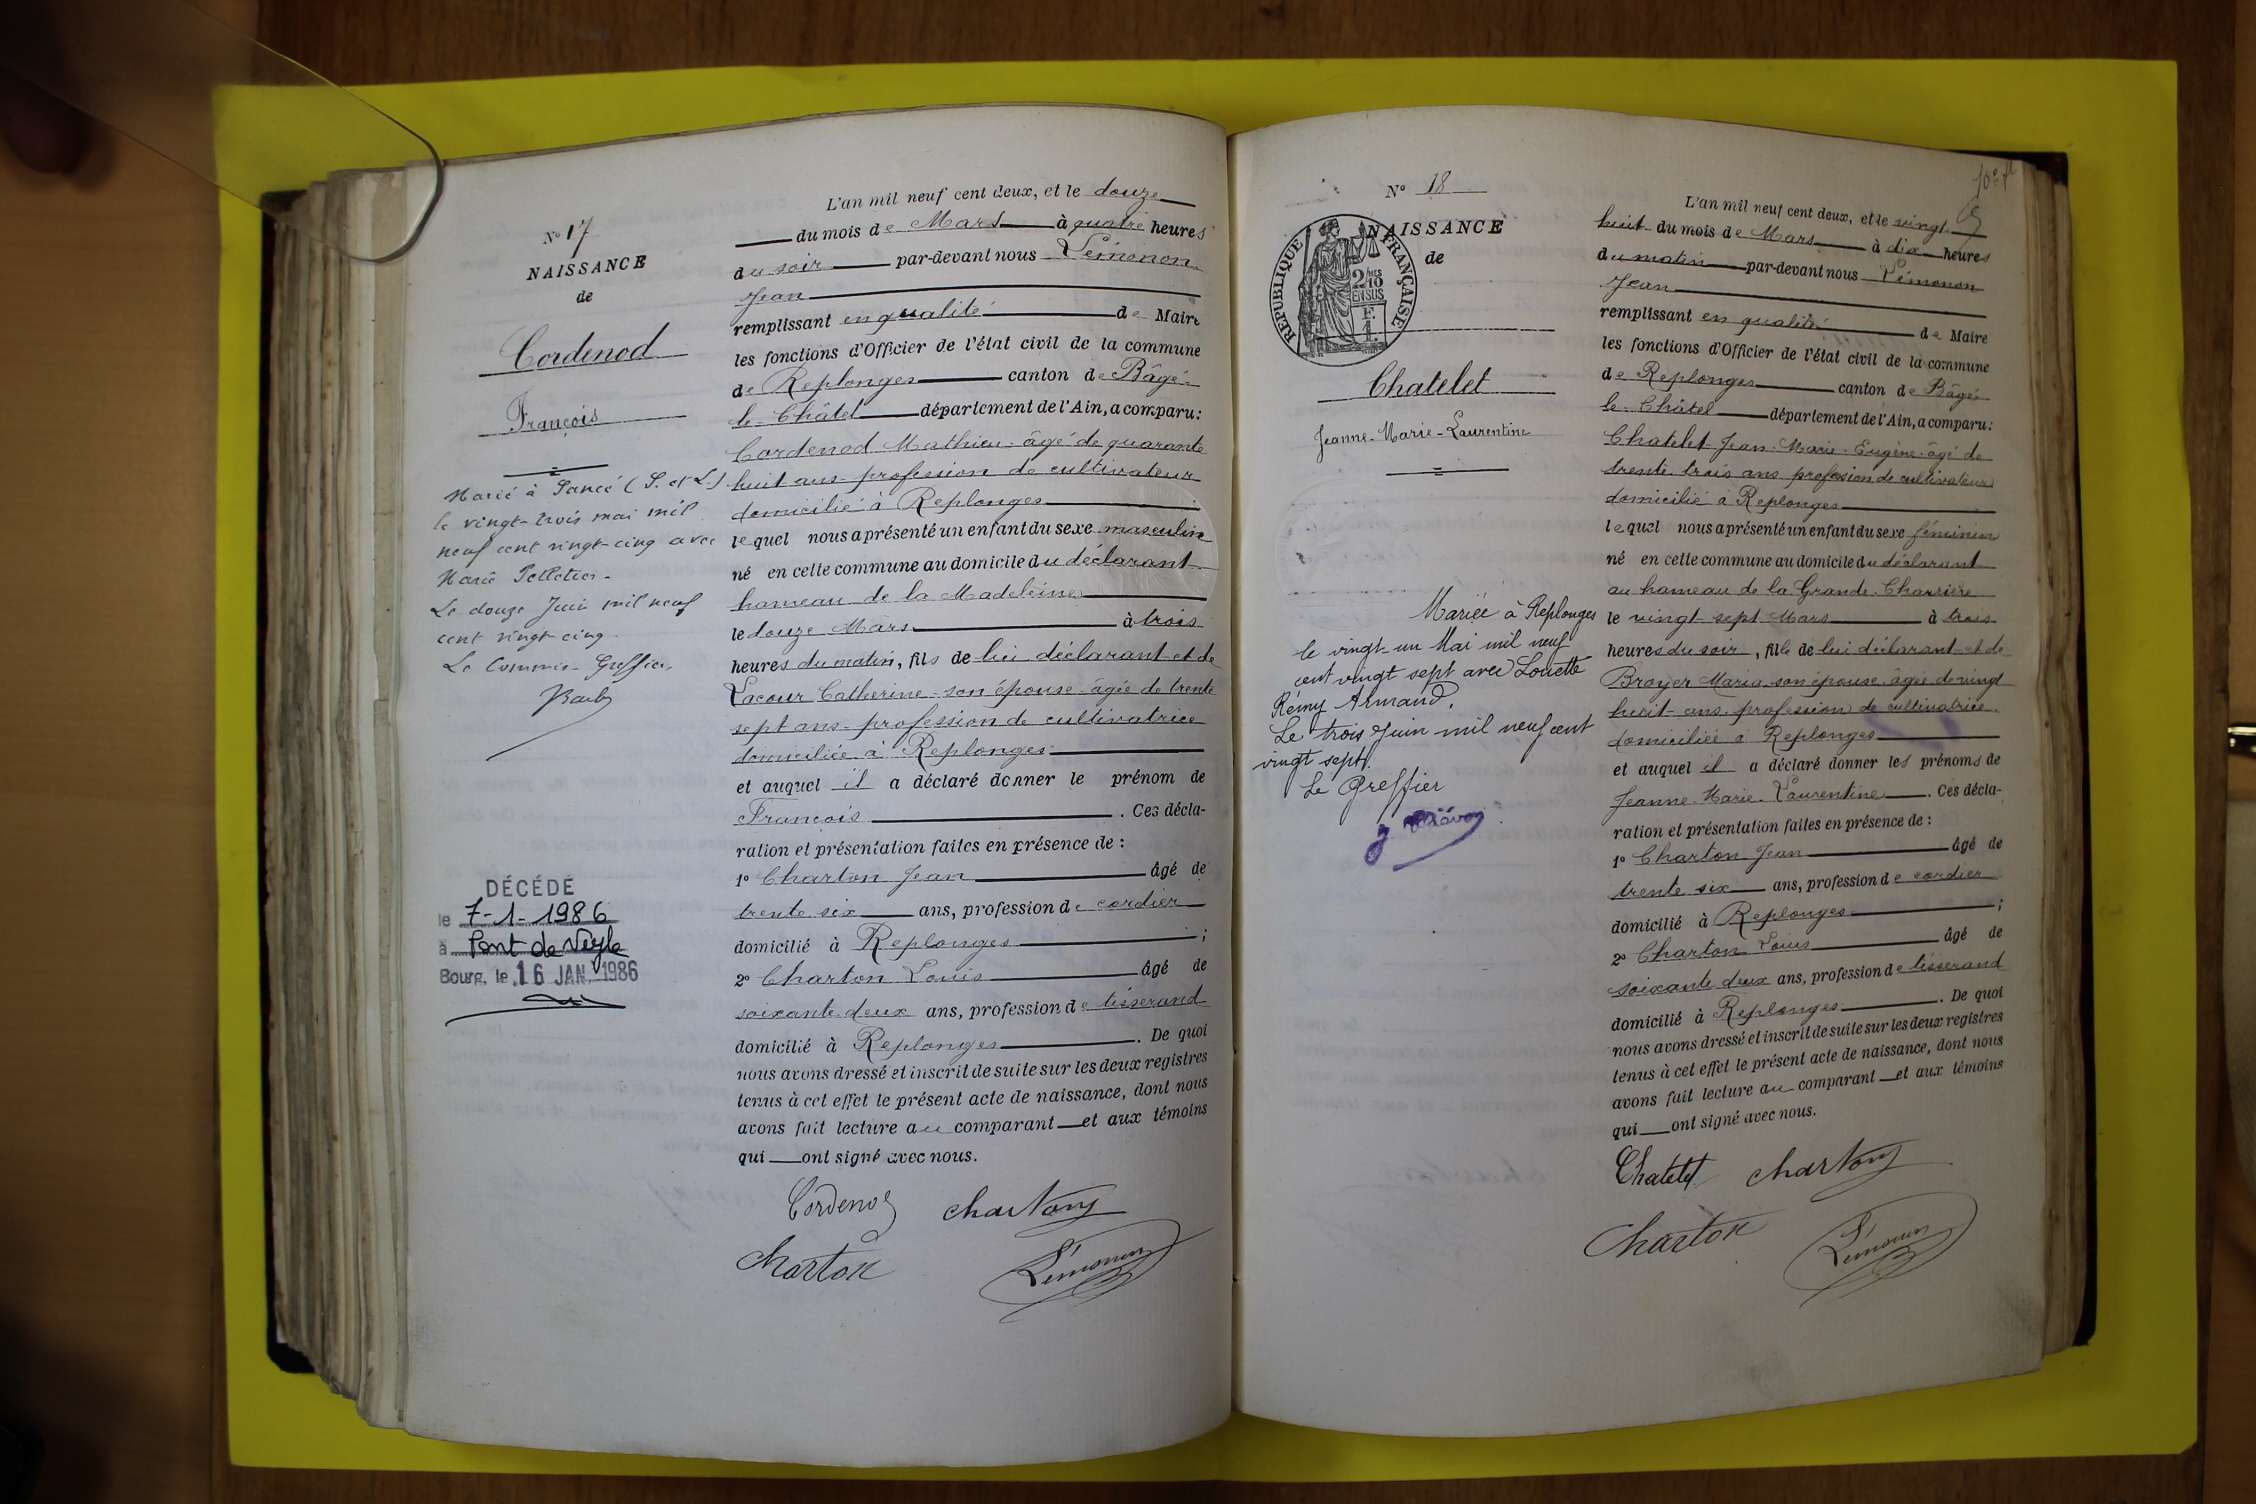 N° 17
NAISSANCE
de
Cordenod
François
Marié à Sancé (S. et L.)
le vingt-trois mai mil
neuf cent vingt-cinq avec
Marie Pelletier -
Le douze Juin mil neuf
cent vingt-cinq
Le Commis-Greffier,
DÉCÉDÉ
le 7-1-1986
à Pont de Veyle
Bourg, le 16 JAN. 1986
L'an mil neuf cent deux, et le douze
du mois de Mars à quatre heures
du soir par-devant nous Lémonon
Jean
remplissant en qualité de Maire
les fonctions d'Officier de l'état civil de la commune
de Replonges canton de Bâgé-
le-Châtel département de l'Ain, a comparu:
Cordenod Mathieu âgé de quarante
huit ans profession de cultivateur
domicilié à Replonges
lequel nous a présenté un enfant du sexe masculin
né en cette commune au domicile du déclarant
hameau de la Madeleine
le douze Mars à trois
heures du matin, fils de lui déclarant et de
Lacour Catherine son épouse âgée de trente
sept ans profession de cultivatrice
domiciliée à Replonges
et auquel il a déclaré donner le prénom de
François . Ces décla-
ration et présentation faites en présence de :
1° Charton Jean âgé de
trente six ans, profession de cordier
domicilié à Replonges ;
2° Charton Louis âgé de
soixante deux ans, profession de tisserand
domicilié à Replonges . De quoi
nous avons dressé et inscrit de suite sur les deux registres
tenus à cet effet le présent acte de naissance, dont nous
avons fait lecture au comparant et aux témoins
qui ont signé avec nous.
Cordenod Charton
Charton Lémonon
N° 18
NAISSANCE
de
RÉPUBLIQUE FRANÇAISE
2/10 EN SUS
F.
1.
Chatelet
Jeanne-Marie-Laurentine
Mariée à Replonges
le vingt-un Mai mil neuf
cent vingt sept avec Louette
Rémy Armand.
Le trois Juin mil neuf cent
vingt sept.
Le Greffier
L'an mil neuf cent deux, et le vingt
huit du mois de Mars à dix heures
du matin par-devant nous Lémonon
Jean
remplissant en qualité de Maire
les fonctions d'Officier de l'état civil de la commune
de Replonges canton de Bâgé-
le-Châtel département de l'Ain, a comparu:
Chatelet Jean-Marie-Eugène âgé de
trente trois ans profession de cultivateur
domicilié à Replonges
lequel nous a présenté un enfant du sexe féminin
né en cette commune au domicile du déclarant
au hameau de la Grande Charrière
le vingt sept Mars à trois
heures du soir, fille de lui déclarant et de
Broyer Maria son épouse âgée de vingt
huit ans profession de cultivatrice
domiciliée à Replonges
et auquel il a déclaré donner les prénoms de
Jeanne-Marie-Laurentine . Ces décla-
ration et présentation faites en présence de :
1° Charton Jean âgé de
trente six ans, profession de cordier
domicilié à Replonges ;
2° Charton Louis âgé de
soixante deux ans, profession de tisserand
domicilié à Replonges . De quoi
nous avons dressé et inscrit de suite sur les deux registres
tenus à cet effet le présent acte de naissance, dont nous
avons fait lecture au comparant et aux témoins
qui ont signé avec nous.
Chatelet Charton
Charton Lémonon